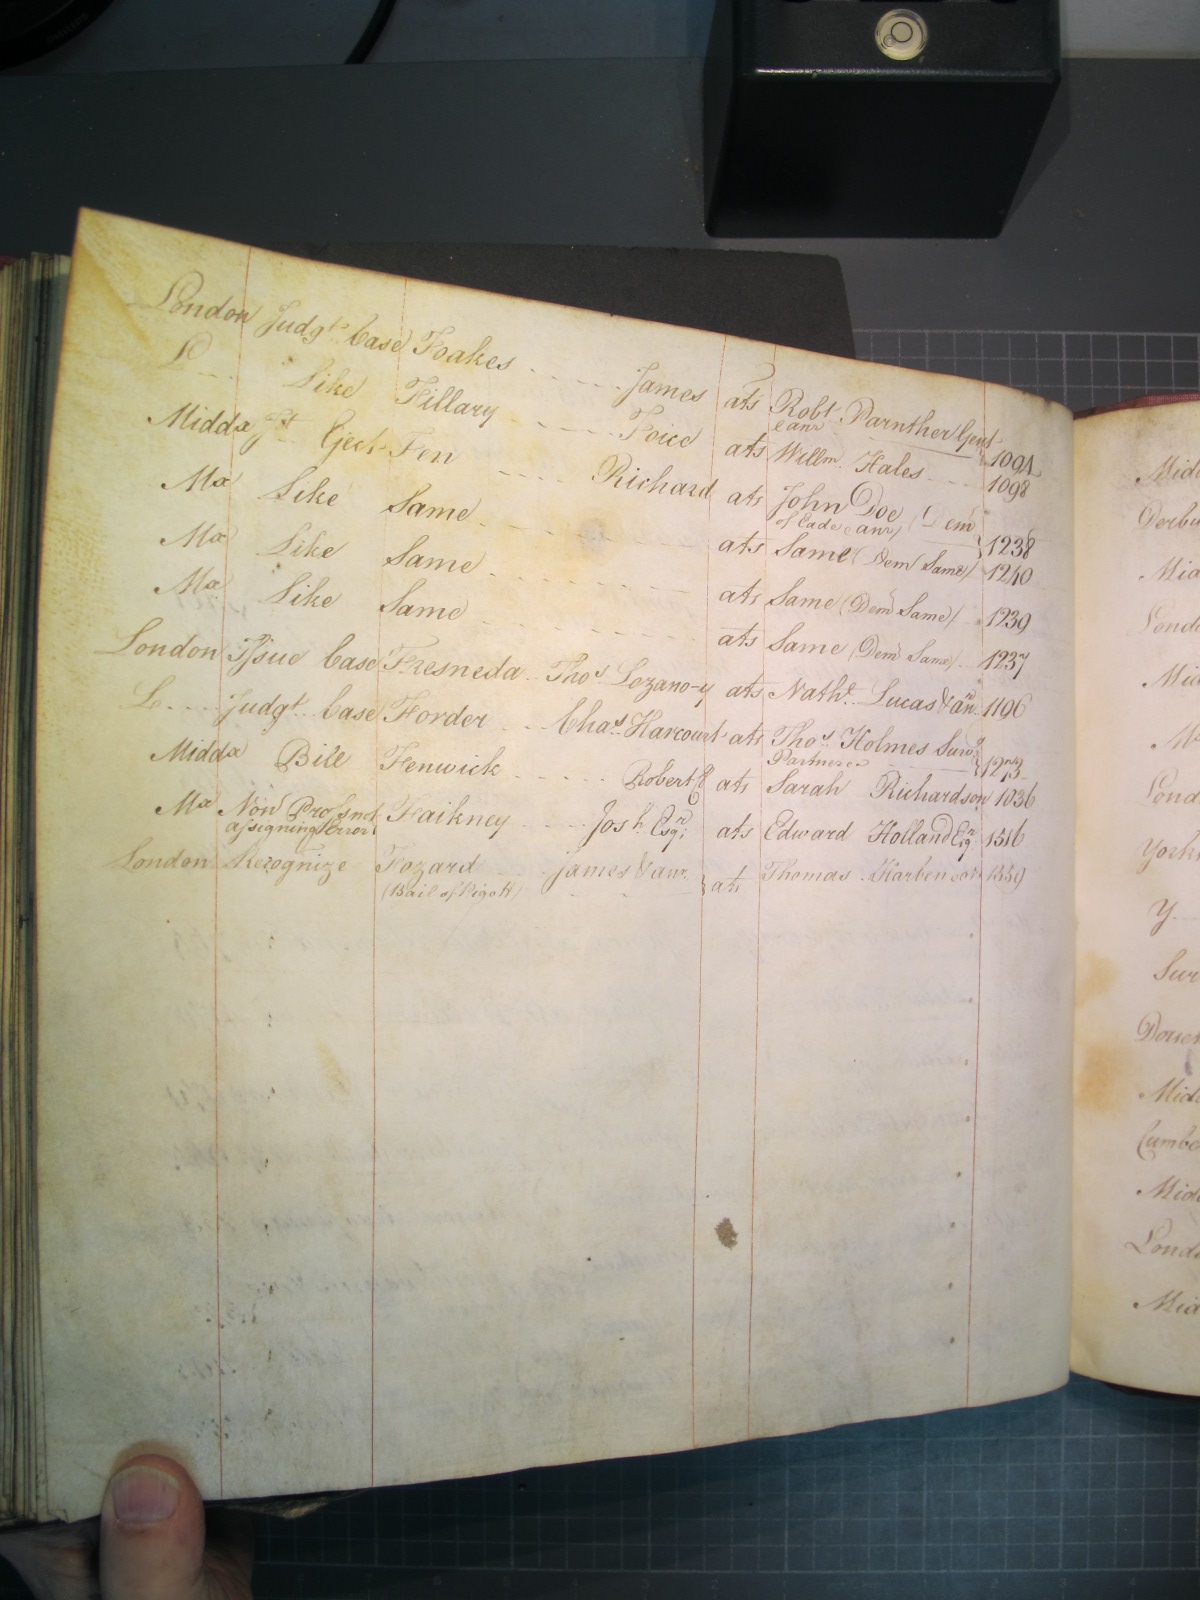 London Judgt. Case Foakes James ats Robt. Parnther Gent
& anr 1094
Lo Like Fillary Foice ats Willm. Hales 1098
Middx Jt. Eject Fen Richard ats John Doe (Dem
of Eade & anr) 1238
Mx Like Same ats Same (Dem Same) 1240
Mx Like Same ats Same (Dem Same) 1239
Mx Like Same ats Same (Dem Same) 1237
London Issue Case Fresneda Thos Lozano-y ats Nathl. Lucas & anr. 1196
Lo Judgt. Case Forder Chas. Harcourt ats Thos. Holmes Survg
Partner &c 1273
Middx Bill Fenwick Robert ats Sarah Richardson 1036
Mx Non Pros not
assigning Errors Faikney Josh. Esqr. ats Edward Holland Esqr. 1516
London Recognize Fozard James & anr. ats Thomas Harben 1559
(Bail of Pigott)
Mid
Derby
Mid
Lond
Mid
M
Lond
Yorks
Y
Sur
Mid
Cumbe
Mid
Lond
Mid